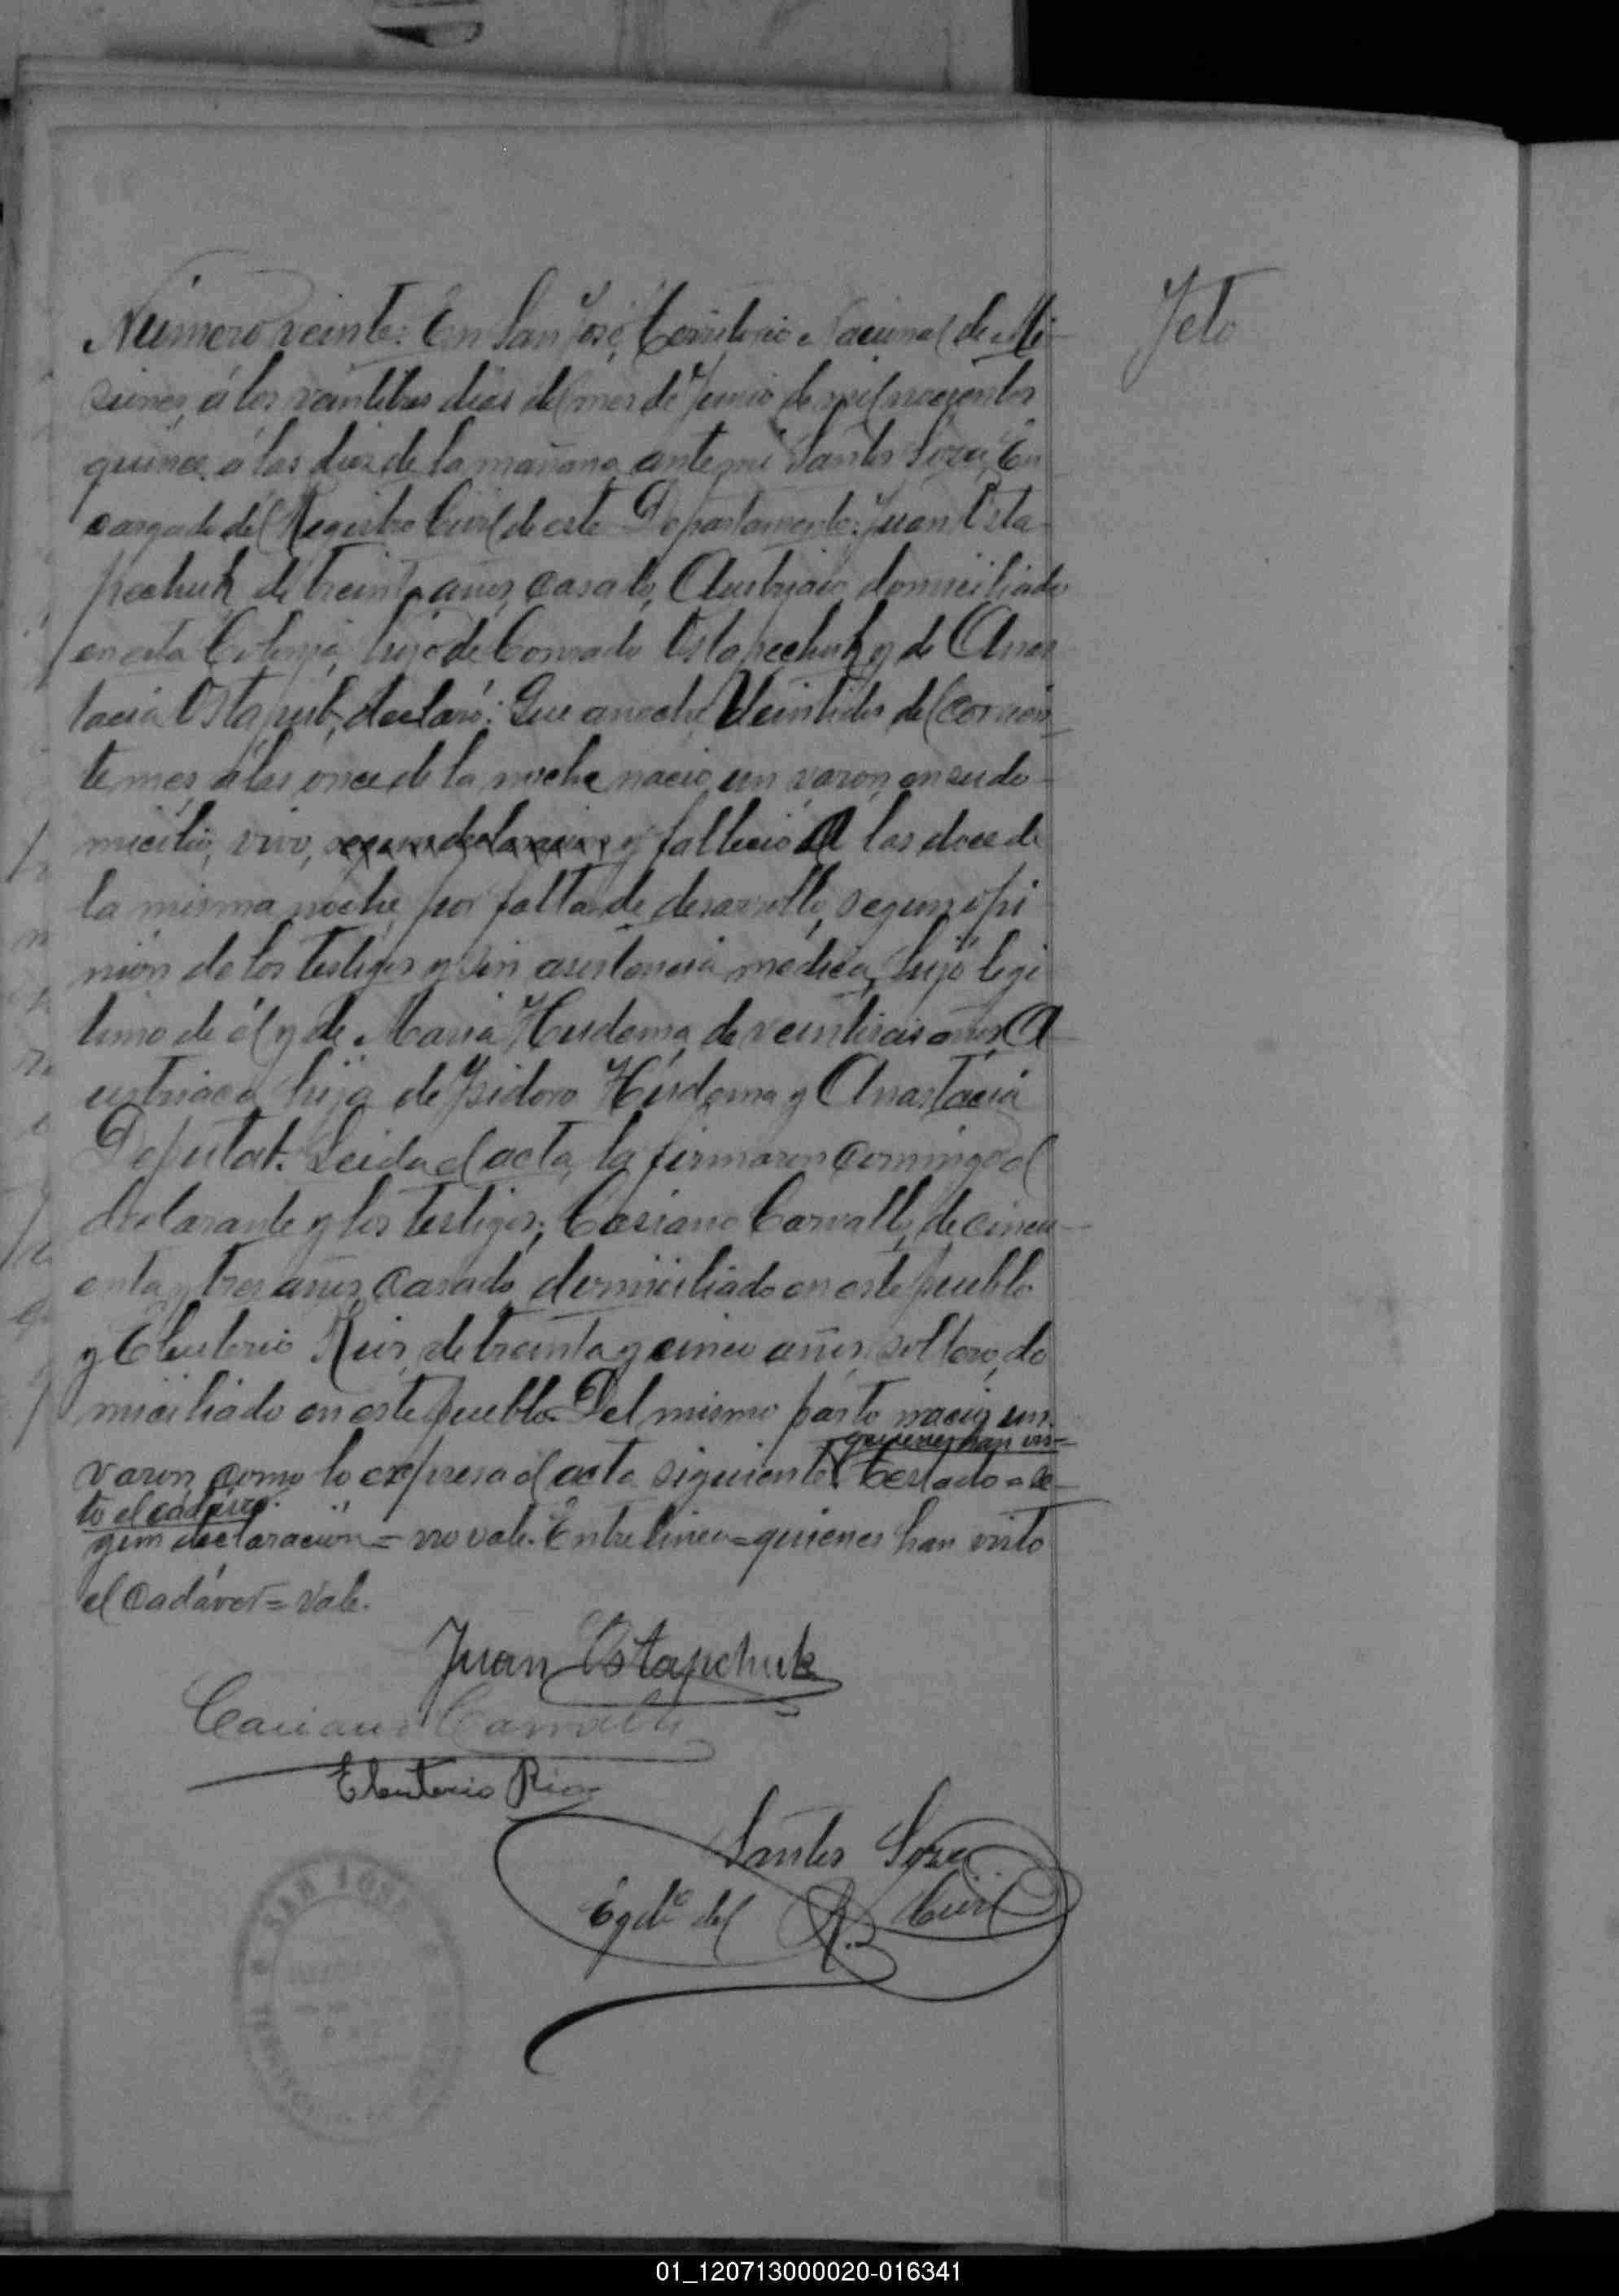 Feto
Número veinte: En San José, Territorio Nacional de Mi-
siones, á los veintitres dias del mes de Junio de mil novecientos
quince, á las diez de la mañana, ante mi Santos Soza, En
cargado del Registro Civil de este Departamento: Juan Osta-
pechuk, de treinta años, casado, Austriaco, domiciliado
en esta Colonia, hijo de Conrado Ostapechuk y de Anas
tacia Ostapiub, declaró: Que anoche, Veintidos del corrien-
te mes, á las once de la noche nació un varon, en su do-
micilio, vivo, segun declaracion y falleció á las doce de
la misma noche, por falta de desarrollo, segun opi
nión de los testigos y sin asistencia médica, hijo legi
timo de él y de Maria Hudema, de veintiseis años, A-
ustriaca, hija de Isidoro Húdema y Anastacia
Deputat. Leida el acta, la firmaron conmigo el
declarante y los testigos; Casiano Carvallo, de cincu-
enta y tres años, casado, domiciliado en este pueblo
y Eleuterio Rios, de treinta y cinco años, soltero, do
miciliado en este pueblo. Del mismo parto nació un
quienes han vis-
varon, como lo expresa el acta siguiente. Testado = se-
to el cadáver.
gun declaración = no vale. Entre linea = quienes han visto
el cadáver = vale.
Juan Ostapchuk
Casiano Carvallo
Eleuterio Rios
Santos Soza
Egdo del R. Civil
SAN JOSE
01_120713000020-016341